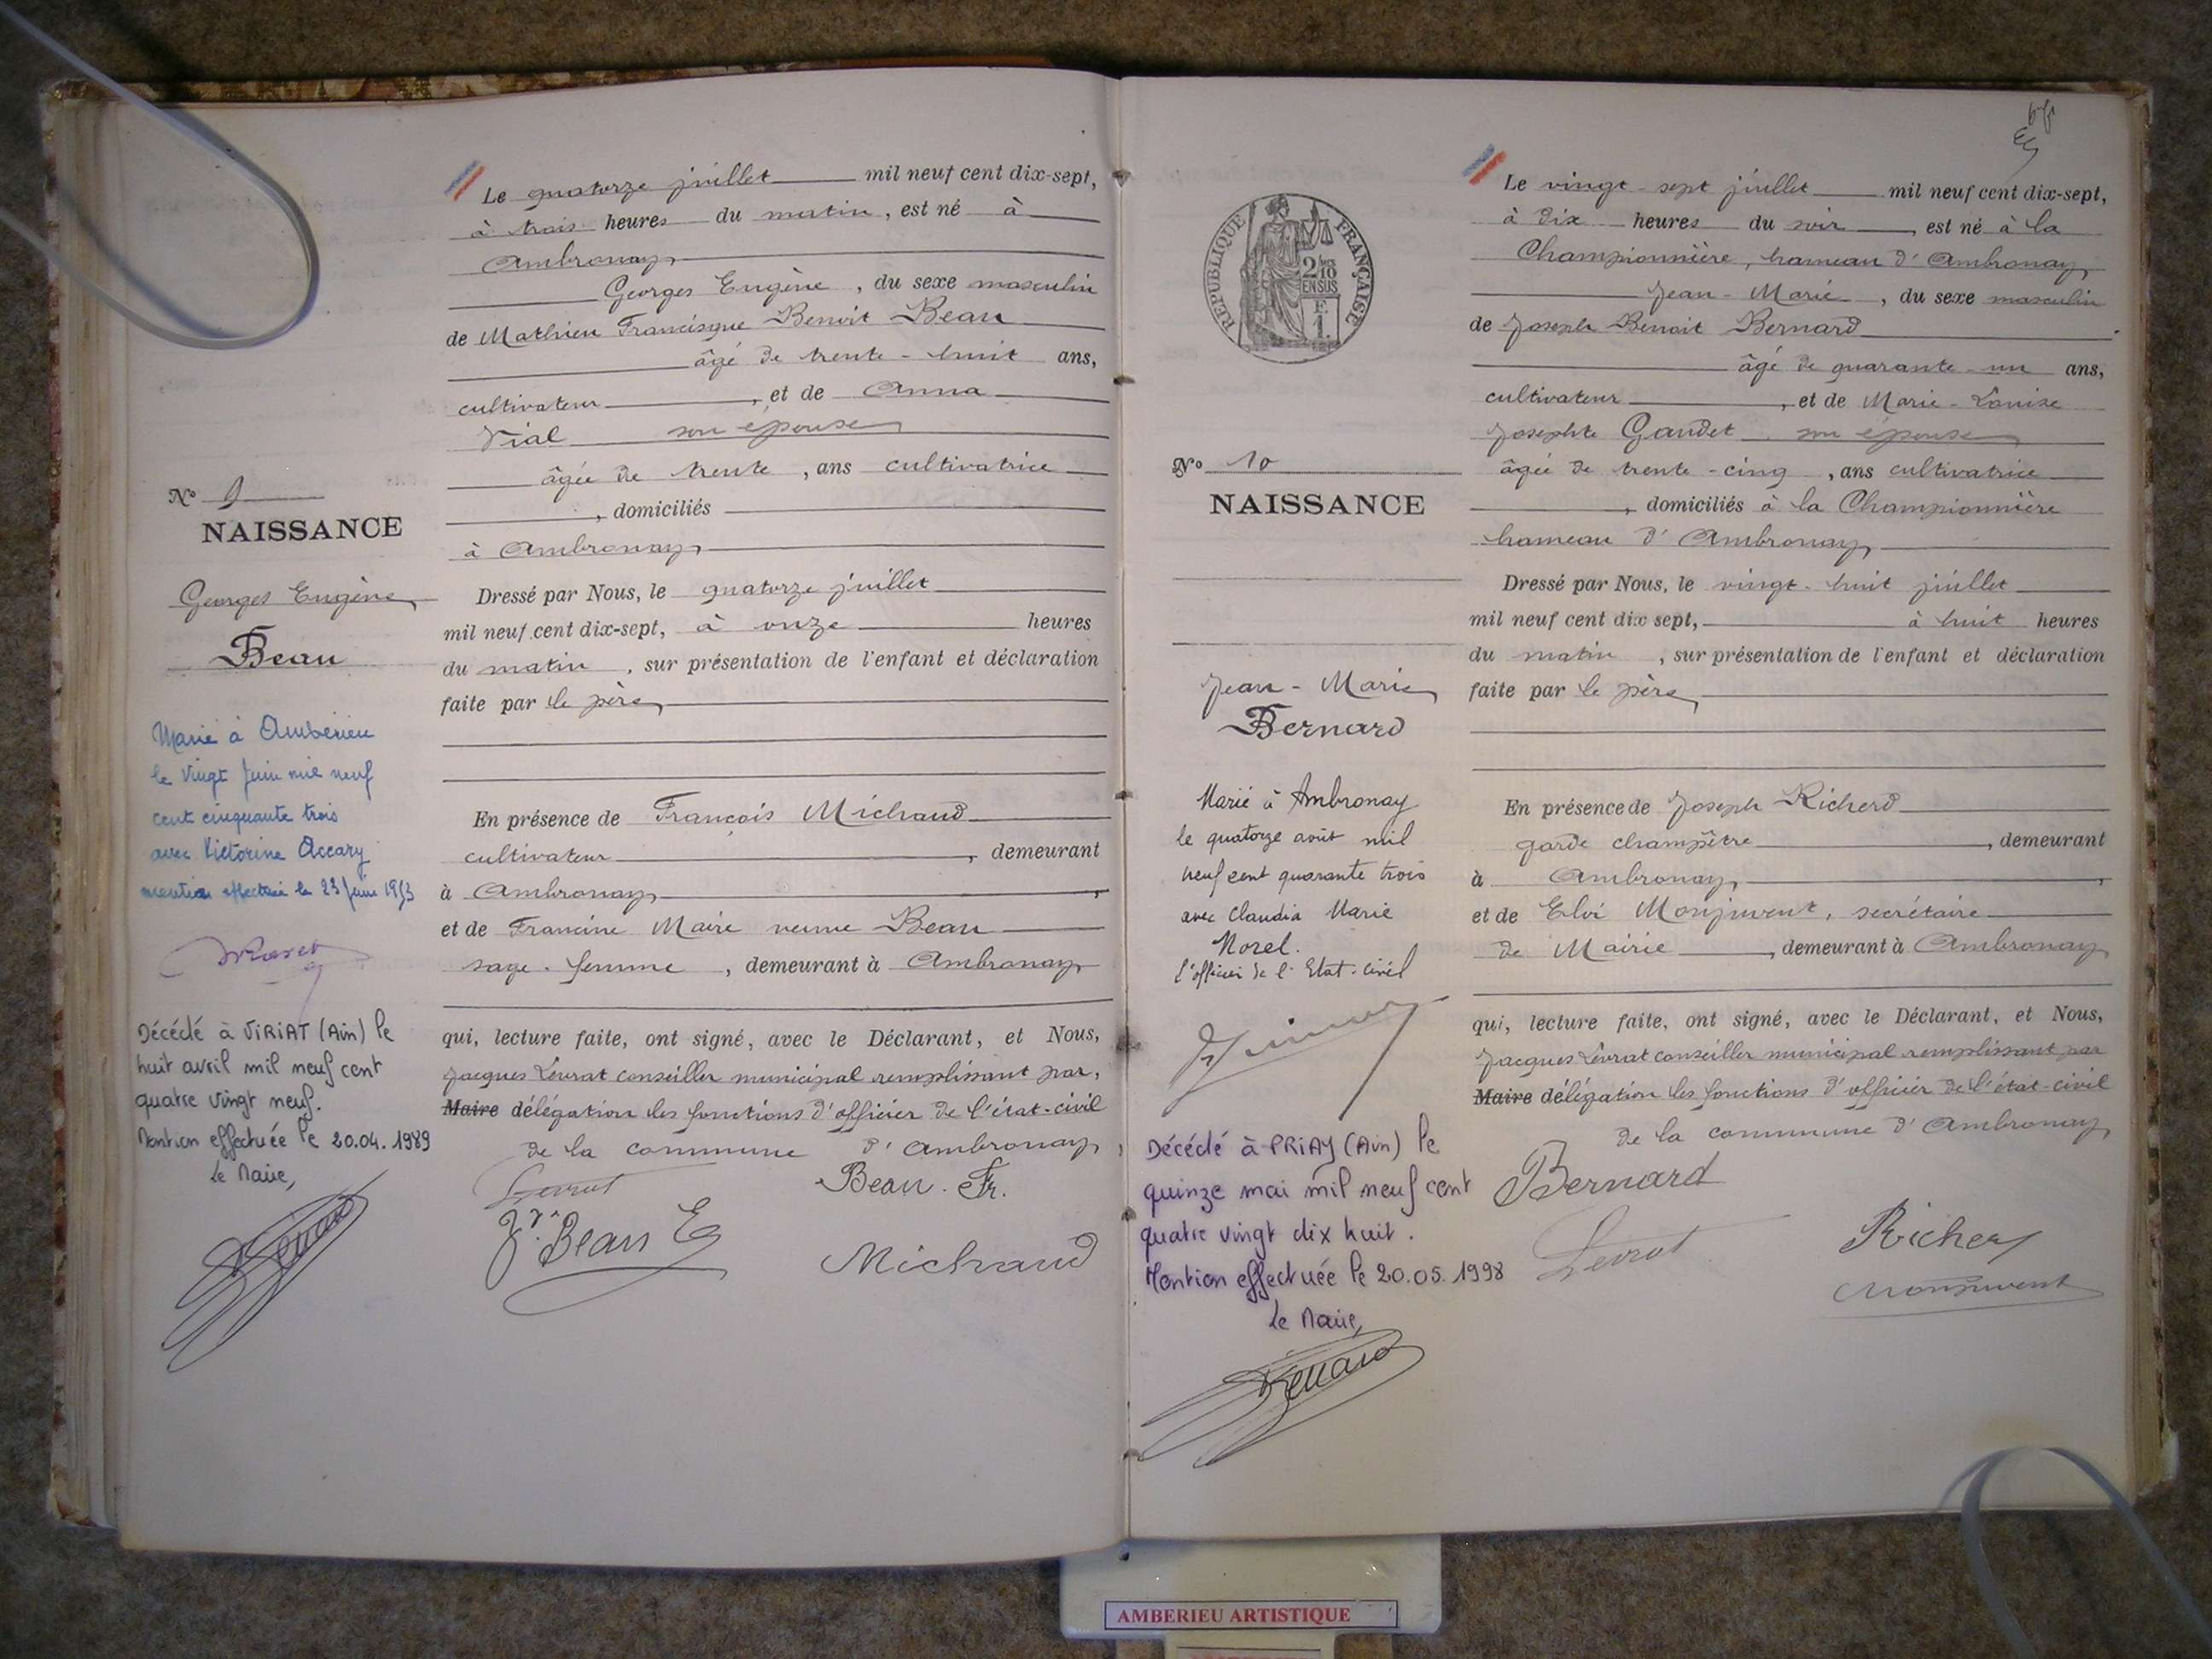 Le quatorze juillet mil neuf cent dix-sept,
à trois heures du matin, est né à
Ambronay
Georges Eugène, du sexe masculin
de Mathieu Francisque Benoit Beau
âgé de trente-huit ans,
cultivateur, et de Anna
Vial son épouse
âgée de trente, ans cultivatrice
, domiciliés
à Ambronay
Dressé par Nous, le quatorze juillet
mil neuf cent dix-sept, à onze heures
du matin, sur présentation de l'enfant et déclaration
faite par le père
En présence de François Michaud
cultivateur, demeurant
à Ambronay,
et de Francine Maire veuve Beau
sage-femme, demeurant à Ambronay
qui, lecture faite, ont signé, avec le Déclarant, et Nous,
Jacques Levrat conseiller municipal remplissant par,
Maire délégation les fonctions d'officier de l'état-civil
de la commune d'Ambronay
Levrat
Beau. Fr.
Beau
Michaud
N° 9
NAISSANCE
Georges Eugène
Beau
Marié à Ambérieu
le vingt Juin mil neuf
cent cinquante trois
avec Victorine Accary
mention effectuée le 23 Juin 1953
Décédé à VIRIAT (Ain) le
huit avril mil neuf cent
quatre vingt neuf.
Mention effectuée le 20.04.1989
Le Maire,
REPUBLIQUE FRANÇAISE
2/10 EN SUS
F.
1.
N° 10
NAISSANCE
Jean-Marie
Bernard
Marié à Ambronay
le quatorze août mil
neuf cent quarante trois
avec Claudia Marie
Morel.
L'officier de l'Etat-civil
Décédé à PRIAY (Ain) le
quinze mai mil neuf cent
quatre vingt dix huit.
Mention effectuée le 20.05.1998
Le Maire,
Le vingt-sept juillet mil neuf cent dix-sept,
à dix heures du soir, est né à la
Championnière, hameau d'Ambronay
Jean-Marie, du sexe masculin
de Joseph Benoit Bernard
âgé de quarante-un ans,
cultivateur, et de Marie-Louise
Josephte Gaudet son épouse
âgée de trente-cinq, ans cultivatrice
, domiciliés à la Championnière
hameau d'Ambronay
Dressé par Nous, le vingt-huit juillet
mil neuf cent dix sept, à huit heures
du matin, sur présentation de l'enfant et déclaration
faite par le père
En présence de Joseph Richerd
garde champêtre, demeurant
à Ambronay,
et de Eloi Monjuvent, secrétaire
de Mairie, demeurant à Ambronay
qui, lecture faite, ont signé, avec le Déclarant, et Nous,
Jacques Levrat conseiller municipal remplissant par
Maire délégation les fonctions d'officier de l'état-civil
de la commune d'Ambronay
Bernard
Levrat
Richerd
Monjuvent
AMBERIEU ARTISTIQUE